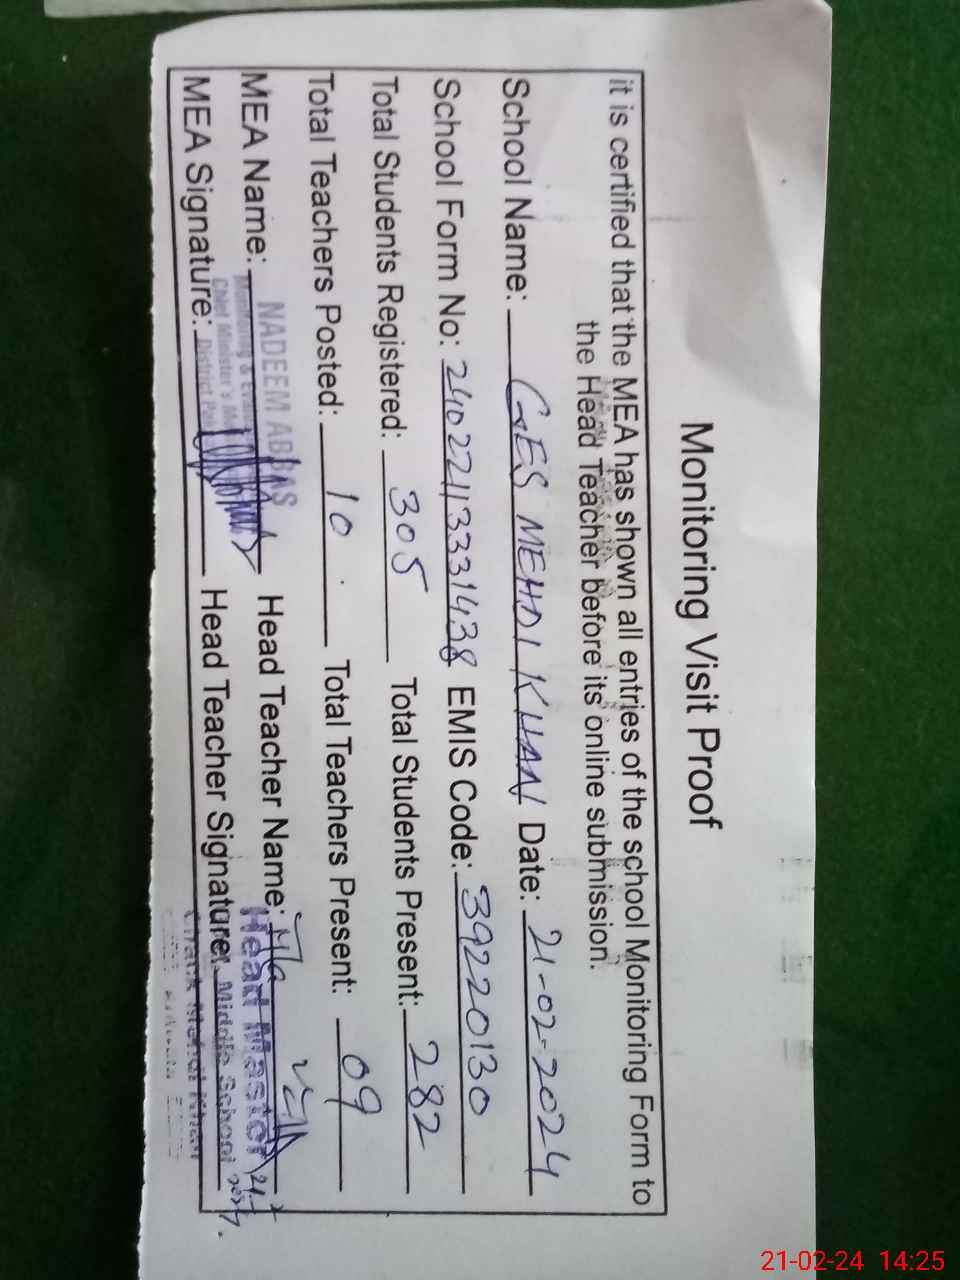 Monitoring Visit Proof
it is certified that the MEA has shown all entries of the school Monitoring Form to
the Head Teacher before its online submission.
School Name: GES MEHDI KHAN Date: 21-02-2024
School Form No: 2402211331438 EMIS Code: 39220130
Total Students Registered: 305 Total Students Present: 282
Total Teachers Posted: 10 Total Teachers Present: 09
MEA Name: NADEEM ABBAS Head Teacher Name:
Monitoring & Evalua
Head Master
MEA Signature: Head Teacher Signature:
Chief Minister's M
District Pak
Middle School
21-02-24 14:25